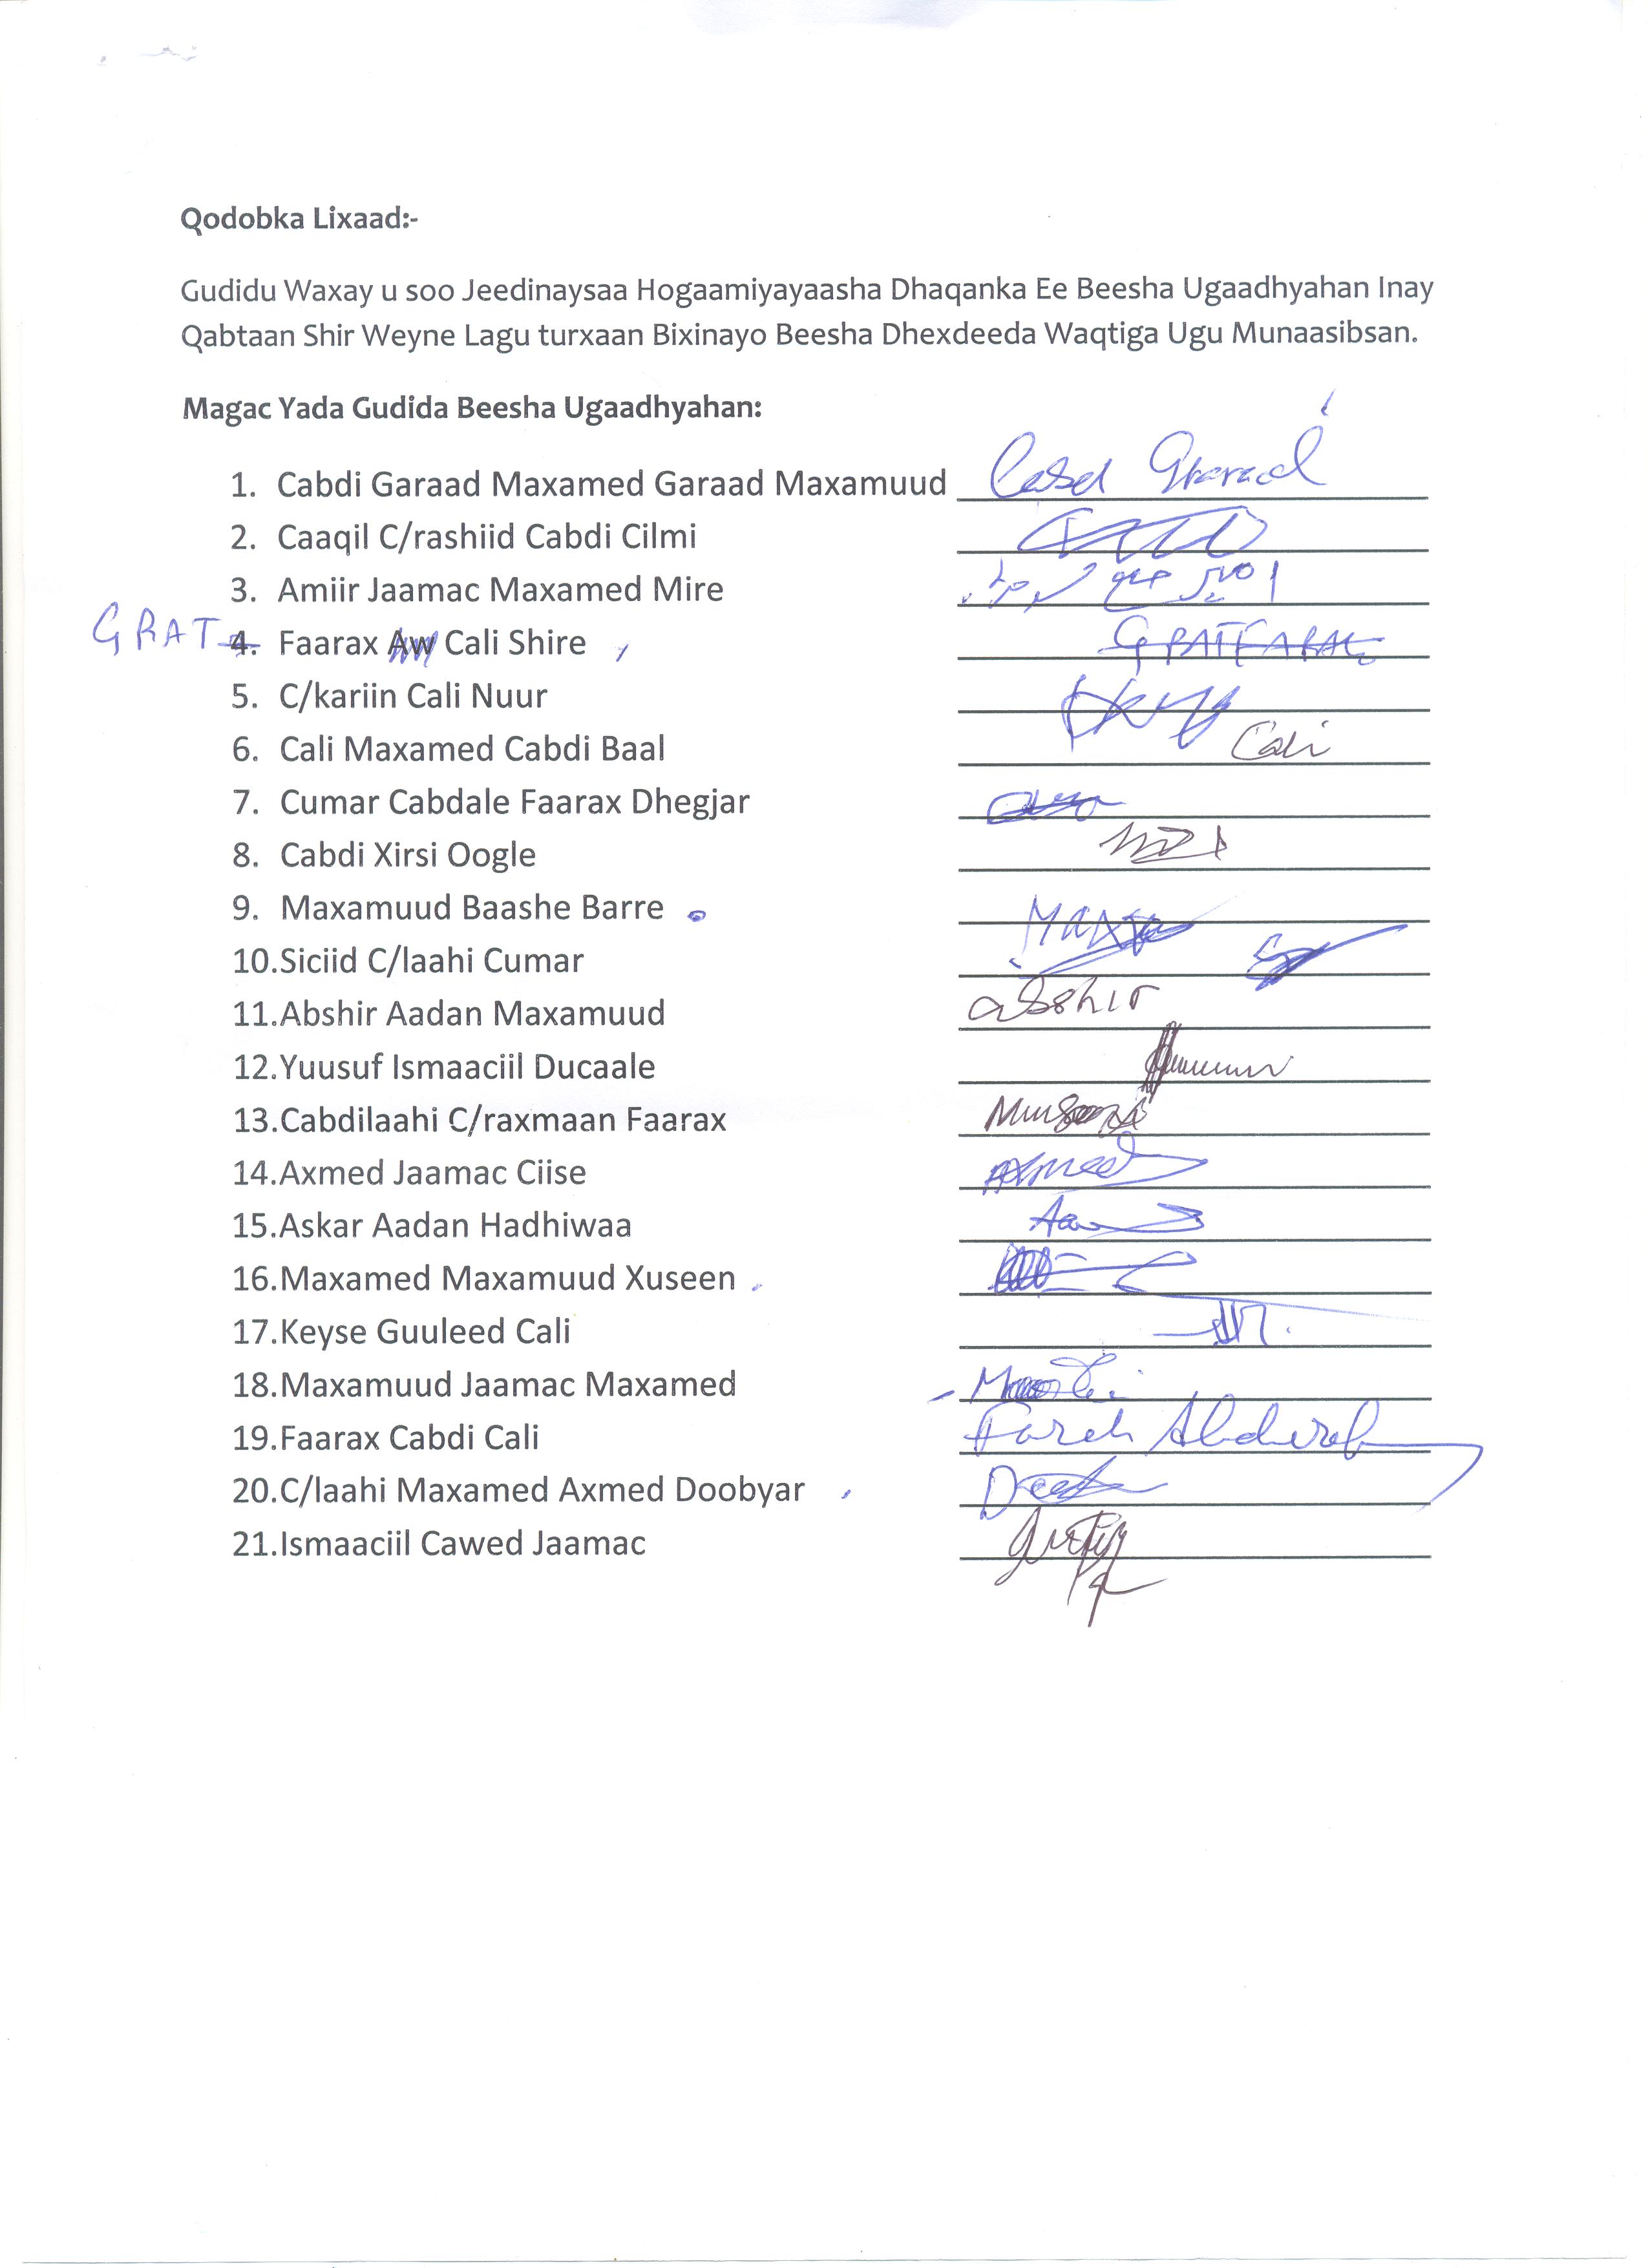 Qodobka Lixaad:-
Gudidu Waxay u soo Jeedinaysaa Hogaamiyayaasha Dhaqanka Ee Beesha Ugaadhyahan Inay
Qabtaan Shir Weyne Lagu turxaan Bixinayo Beesha Dhexdeeda Waqtiga Ugu Munaasibsan.
Magac Yada Gudida Beesha Ugaadhyahan:
1. Cabdi Garaad Maxamed Garaad Maxamuud
2. Caaqil C/rashiid Cabdi Cilmi
3. Amiir Jaamac Maxamed Mire
GRAT 4. Faarax Aw Cali Shire
5. C/kariin Cali Nuur
6. Cali Maxamed Cabdi Baal Cali
7. Cumar Cabdale Faarax Dhegjar
8. Cabdi Xirsi Oogle
9. Maxamuud Baashe Barre
10.Siciid C/laahi Cumar
11.Abshir Aadan Maxamuud
12.Yuusuf Ismaaciil Ducaale
13.Cabdilaahi C/raxmaan Faarax
14.Axmed Jaamac Ciise
15.Askar Aadan Hadhiwaa
16.Maxamed Maxamuud Xuseen
17.Keyse Guuleed Cali
18.Maxamuud Jaamac Maxamed
19.Faarax Cabdi Cali Farah
20.C/laahi Maxamed Axmed Doobyar
21.Ismaaciil Cawed Jaamac